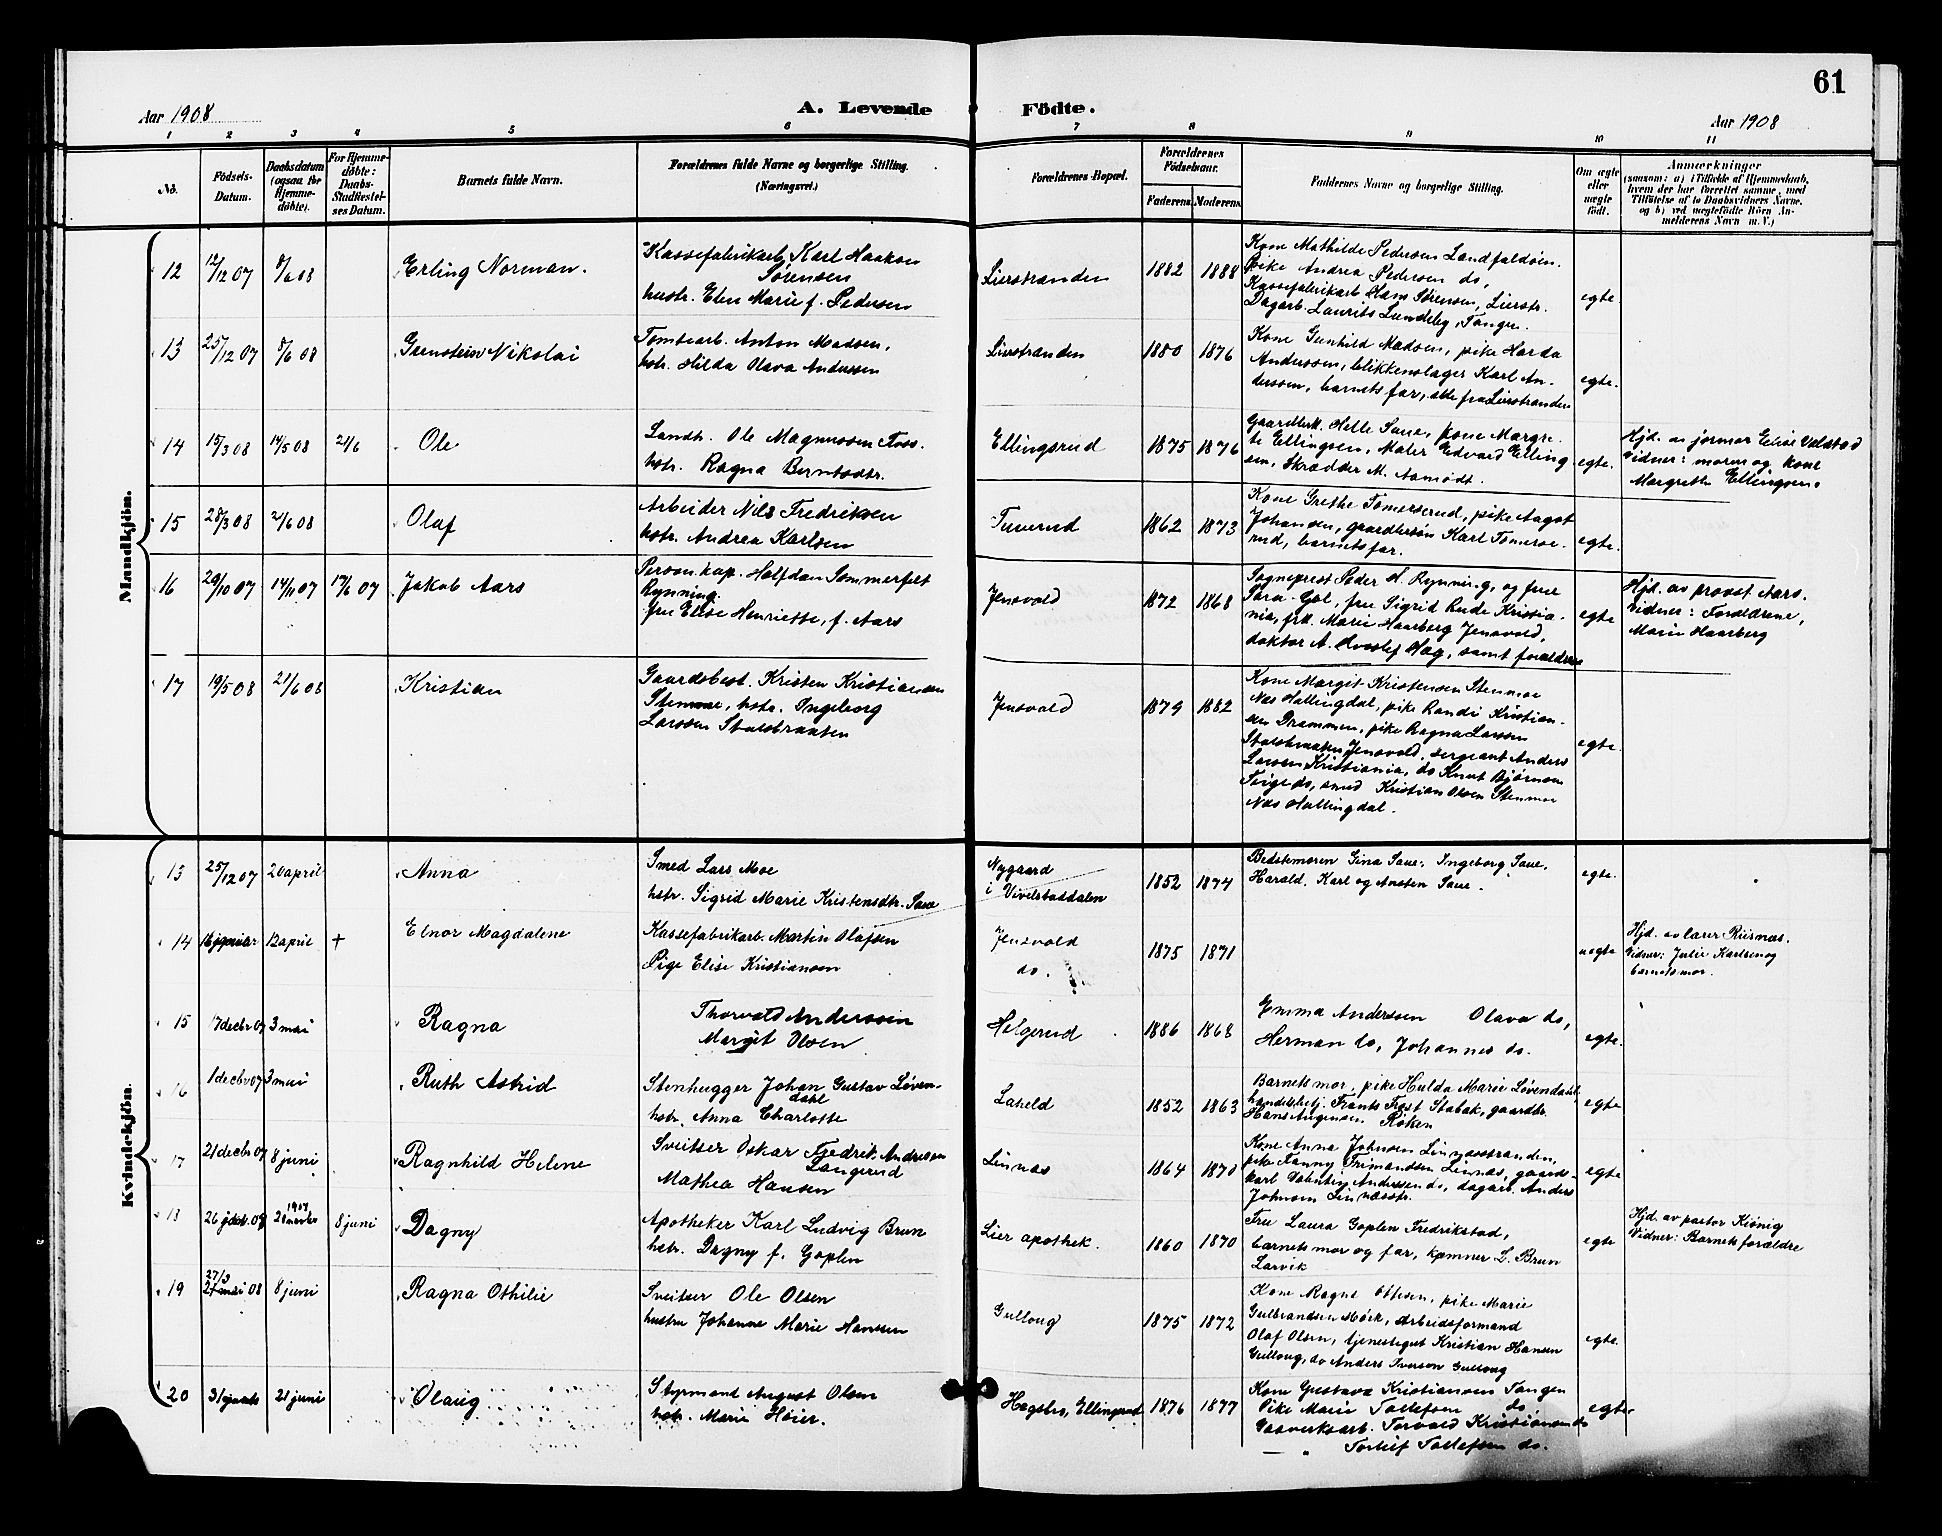 61
Aar 1908
A. Levende
Födte.
Aar 1908
1 2 3 4 5 6 7 8 9 10 11
No.
Födsels-
Datum.
Daabsdatum
(ogsaa for
Hjemme-
döbte).
For Hjemme-
döbte:
Daabs-
Stadfæstel-
ses Datum.
Barnets fulde Navn.
Forældrenes fulde Navne og borgerlige Stilling.
(Næringsvei.)
Forældrenes Bopæl.
Forældrenes
Födselsaar.
Faderens. Moderens.
Faddernes Navne og borgerlige Stilling.
Om ægte
eller
uægte
födt.
Anmærkninger
(saasom: a) i Tilfælde af Hjemmedaab,
hvem der har forrettet samme, med
Tilföielse af to Daabsvidners Navne,
og b) ved uægtefödte Börn An-
melderens Navn m. V.)
Mandkjön.
12 12/12 07 8/6 08 Erling Norman.
Kassefabrikarb. Karl Haakon
Sørensen
hustr. Elen Marie f. Pedersen
Lierstranden 1882 1888
Kone Mathilde Pedersen Landfaldøen.
pike Andrea Pedersen do,
Kassefabrikarb Hans Sørensen, Lierstr.
Dagarb. Laurits Lundeby, Tangen.
egte
13 25/12 07 8/6 08 Nikolai
Tomtearb. Anton Madsen,
hstr. Hilda Olava Anderssen
Lierstranden 1880 1876
Kone Gunhild Madsen, pike Harda
Anderssen, blikkenslager Karl An-
derssen, barnets far, alle fra Lierstranden
egte.
14 15/3 08 14/5 08 21/6 Ole
Landh. Ole Magnussen Foss.
hstr. Ragna Berntsdtr.
Ellingsrud 1875 1876
Gaardbrk. Helle Saue, kone Margre-
te Ellingsen, Maler Edvard Elling
sen, Skrædder M. Aamodt.
egte.
Hjd. av jormor Elise Valstad
Vidner: moren og kone
Margrethe Ellingsen.
15 28/3 08 21/6 08 Olaf
Arbeider Nils Fredriksen
hstr. Andrea Karlsen
Tuverud 1862 1873
Kone Grethe Tomerserud, pike Aagot
Johansen, gaardbrsøn Karl Tomerse-
rud, barnets far.
egte.
16 29/10 07 14/11 07 17/6 07 Jakob Aars
Person.kap. Halfdan Sommerfelt
Rynning.
fru Elise Henriette, f. Aars
Jensvold 1872 1868
Sogneprest Peder H. Rynning, og frue
Sara-Gol, frue Sigrid Rude Kristia-
nia, frk. Marie Haarberg Jensvold,
doktor A. Hæg, samt forældrene
egte
Hjd. av provst Aars.
Vidner: Forældrene,
Marie Haarberg
17 19/5 08 21/6 08 Kristian
Gaardsbest. Kristen Kristiansen
Stenmoe, hstr. Ingeborg
Larssen Stalsbraaten
Jensvold 1879 1882
Kone Margit Kristensen Stenmoe
Næs Hallingdal, pike Randi Kristian-
sen Drammen, pike Ragna Larssen
Stalsbraaten Jensvold, sergeant Anders
Larsen Kristiania, do Knut Bjørnsen
Teige do, smed Kristian Olsen Stenmoe
Næs Hallingdal.
egte.
Kvindekjön.
13 25/12 07 20 april Anna
Smed Lars Moe
hstr. Sigrid Marie Kristensdtr. Saue
Nygaard
i Vivelstaddalen 1852 1874
Bedstemoren Gina Saue, Ingeborg Saue,
Harald, Karl og Ansten Saue.
egte.
14 12 april + Elnor Magdalene
Kassefabrikarb. Martin Olafsen
Pige Elise Kristiansen
Jensvold
do. 1875 1871
uegte
Hjd. av lærer Riisnæs.
Vidner: Julie Karlsen og
barnets mor.
15 17 decbr 07 3 mai Ragna
Thorvald Anderssen
Margit Olsen
Helgerud 1886 1868
Emma Anderssen Olava do,
Herman do, Johannes do.
egte.
16 1 decbr 07 3 mai Ruth Astrid
Stenhugger Johan Gustav Løven-
dahl
hstr. Anna Charlotte
Laheld 1852 1863
Barnets mor, pike Hulda Marie Løvendahl,
handelsbetj. Frants Frost Stabæk, gaardbr.
Hans Røken
egte
17 21 decbr 07 8 juni Ragnhild Helene
Sveitser Oskar Fredrik Andersen
Langerud
Mathea Hansen
Linnæs 1864 1870
Kone Anna Johnsen Linnæsstranden,
pike Fanny Linnæs, gaards-
karl Valentin Anderssen do, dagarb. Anders
Johnsen Linnæsstr.
egte
1907
8 juni Dagny
Apotheker Karl Ludvig Brun
hstr. Dagny f. Goplen
Lier apothek. 1860 1870
Fru Laura Goplen Fredrikstad,
barnets mor og far, kæmner L. Brun
Larvik
egte
Hjd. av pastor Kiönig
Vidner: Barnets forældre
27/3
19 8 juni Ragna Othilie
Sveitser Ole Olsen
hustru Johanne Marie Hanssen
Gulloug 1875 1872
Kone Ragne Ottesen, pike Marie
Gulbrandsen Mørk, Arbeidsformand
Olaf Olsen, tjenestegut Kristian Hansen
Gulloug, do Anders Iverson Gulloug
egte.
20 21 juni Olaug
Styrmand August Olsen
hstr. Marie Høier.
Hagsbro, Ellingsrud 1876 1877
Kone Gustava Kristiansen Tangen
Pike Marie Tollefsen do
Gasverksarb. Torvald Kristiansen do
— " Torleif Tollefsen do.
egte